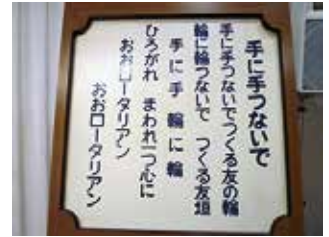 手に手つないで
手に手つないでつくる友の輪
輪に輪つないで つくる友垣
手に手 輪に輪
ひろがれ まわれ一つ心に
おおロータリアン
おおロータリアン